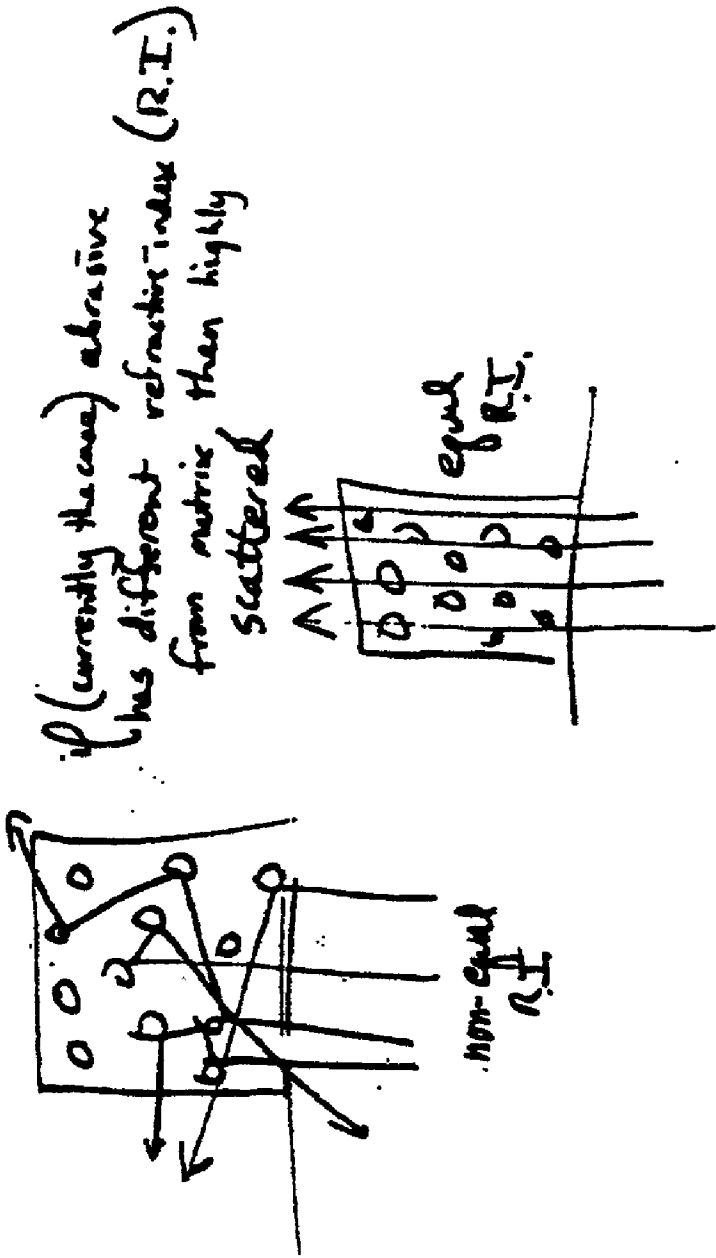 if (currently the case) abrasive
has different refractive-index (R.I.)
from matrix than highly
scattered
non-equal
R.I
equal
R.I.